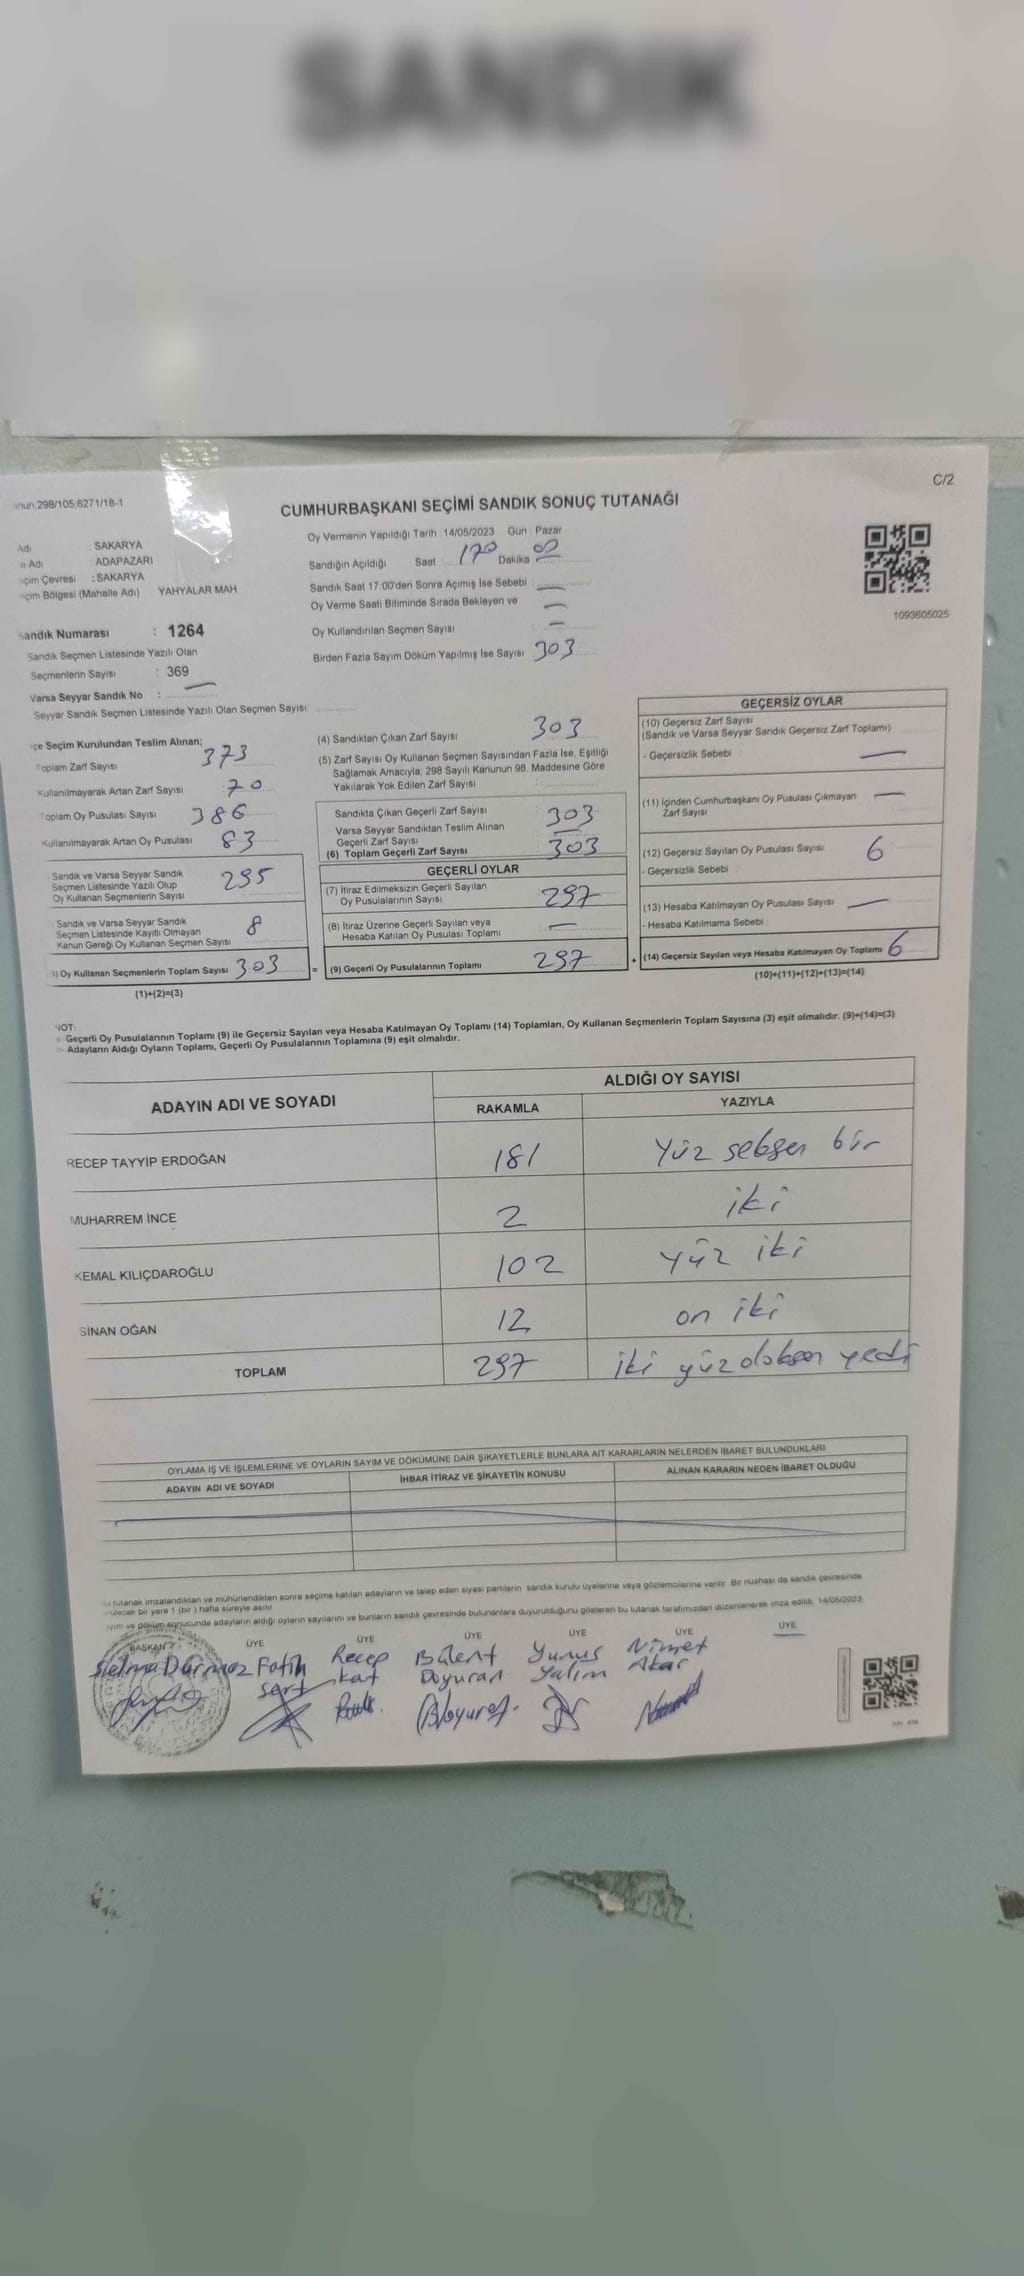 SANDIK
C/2
298/105,6271/18-1
CUMHURBAŞKANI SEÇİMİ SANDIK SONUÇ TUTANAĞI
Adı SAKARYA
Adı : ADAPAZARI
Çevresi : SAKARYA
Bölgesi (Mahalle Adı) YAHYALAR MAH
Sandık Numarası : 1264
Sandık Seçmen Listesinde Yazılı Olan
Seçmenlerin Sayısı : 369
Varsa Seyyar Sandık No : —
Seyyar Sandık Seçmen Listesinde Yazılı Olan Seçmen Sayısı:
Oy Vermenin Yapıldığı Tarih :14/05/2023 Gün : Pazar
Sandığın Açıldığı Saat : Dakika :
Sandık Saat 17:00'den Sonra Açımış İse Sebebi : —
Oy Verme Saati Bitiminde Sırada Bekleyen ve —
Oy Kullandırılan Seçmen Sayısı : —
Birden Fazla Sayım Döküm Yapılmış İse Sayısı : 303
1093605025
Seçim Kurulundan Teslim Alınan;
Toplam Zarf Sayısı : 373
Kullanılmayarak Artan Zarf Sayısı : 70
Toplam Oy Pusulası Sayısı : 386
Kullanılmayarak Artan Oy Pusulası : 83
Sandık ve Varsa Seyyar Sandık
Seçmen Listesinde Yazılı Olup
Oy Kullanan Seçmenlerin Sayısı 295
Sandık ve Varsa Seyyar Sandık
Seçmen Listesinde Kayıtlı Olmayan
Kanun Gereği Oy Kullanan Seçmen Sayısı 8
Oy Kullanan Seçmenlerin Toplam Sayısı 303 =
(1)+(2)=(3)
(4) Sandıktan Çıkan Zarf Sayısı 303
(5) Zarf Sayısı Oy Kullanan Seçmen Sayısından Fazla İse, Eşitliği
Sağlamak Amacıyla; 298 Sayılı Kanunun 98. Maddesine Göre
Yakılarak Yok Edilen Zarf Sayısı
Sandıkta Çıkan Geçerli Zarf Sayısı 303
Varsa Seyyar Sandıktan Teslim Alınan
Geçerli Zarf Sayısı —
(6) Toplam Geçerli Zarf Sayısı 303
GEÇERLİ OYLAR
(7) İtiraz Edilmeksizin Geçerli Sayılan
Oy Pusulalarının Sayısı 297
(8) İtiraz Üzerine Geçerli Sayılan veya
Hesaba Katılan Oy Pusulası Toplamı —
(9) Geçerli Oy Pusulalarının Toplamı 297 +
GEÇERSİZ OYLAR
(10) Geçersiz Zarf Sayısı
(Sandık ve Varsa Seyyar Sandık Geçersiz Zarf Toplamı)
- Geçersizlik Sebebi —
(11) İçinden Cumhurbaşkanı Oy Pusulası Çıkmayan —
Zarf Sayısı
(12) Geçersiz Sayılan Oy Pusulası Sayısı 6
- Geçersizlik Sebebi
(13) Hesaba Katılmayan Oy Pusulası Sayısı —
- Hesaba Katılmama Sebebi
(14) Geçersiz Sayılan veya Hesaba Katılmayan Oy Toplamı 6
(10)+(11)+(12)+(13)=(14)
NOT:
Geçerli Oy Pusulalarının Toplamı (9) ile Geçersiz Sayılan veya Hesaba Katılmayan Oy Toplamı (14) Toplamları, Oy Kullanan Seçmenlerin Toplam Sayısına (3) eşit olmalıdır. (9)+(14)=(3)
Adayların Aldığı Oyların Toplamı, Geçerli Oy Pusulalarının Toplamına (9) eşit olmalıdır.
ADAYIN ADI VE SOYADI ALDIĞI OY SAYISI
RAKAMLA YAZIYLA
RECEP TAYYİP ERDOĞAN 181 Yüz seksen bir
MUHARREM İNCE 2 iki
KEMAL KILIÇDAROĞLU 102 yüz iki
SİNAN OĞAN 12 on iki
TOPLAM 297 iki yüz doksan yedi
OYLAMA İŞ VE İŞLEMLERİNE VE OYLARIN SAYIM VE DÖKÜMÜNE DAİR ŞİKAYETLERLE BUNLARA AİT KARARLARIN NELERDEN İBARET BULUNDUKLARI
ADAYIN ADI VE SOYADI İHBAR İTİRAZ VE ŞİKAYETİN KONUSU ALINAN KARARIN NEDEN İBARET OLDUĞU
tutanak imzalandıktan ve mühürlendikten sonra seçime katılan adayların ve talep eden siyasi partilerin sandık kurulu üyelerine veya gözlemcilerine verilir. Bir nüshası da sandık çevresinde
bir yere 1 (bir) hafta süreyle asılır.
ve döküm sonucunda adayların aldığı oyların sayılarını ve bunların sandık çevresinde bulunanlara duyurulduğunu gösteren bu tutanak tarafımızdan düzenlenerek imza edildi. 14/05/2023
BAŞKAN ÜYE ÜYE ÜYE ÜYE ÜYE ÜYE
Selma Durmaz Fatih Sert Recep Kat Bülent Doyuran Yunus Yalım Nimet Akar —